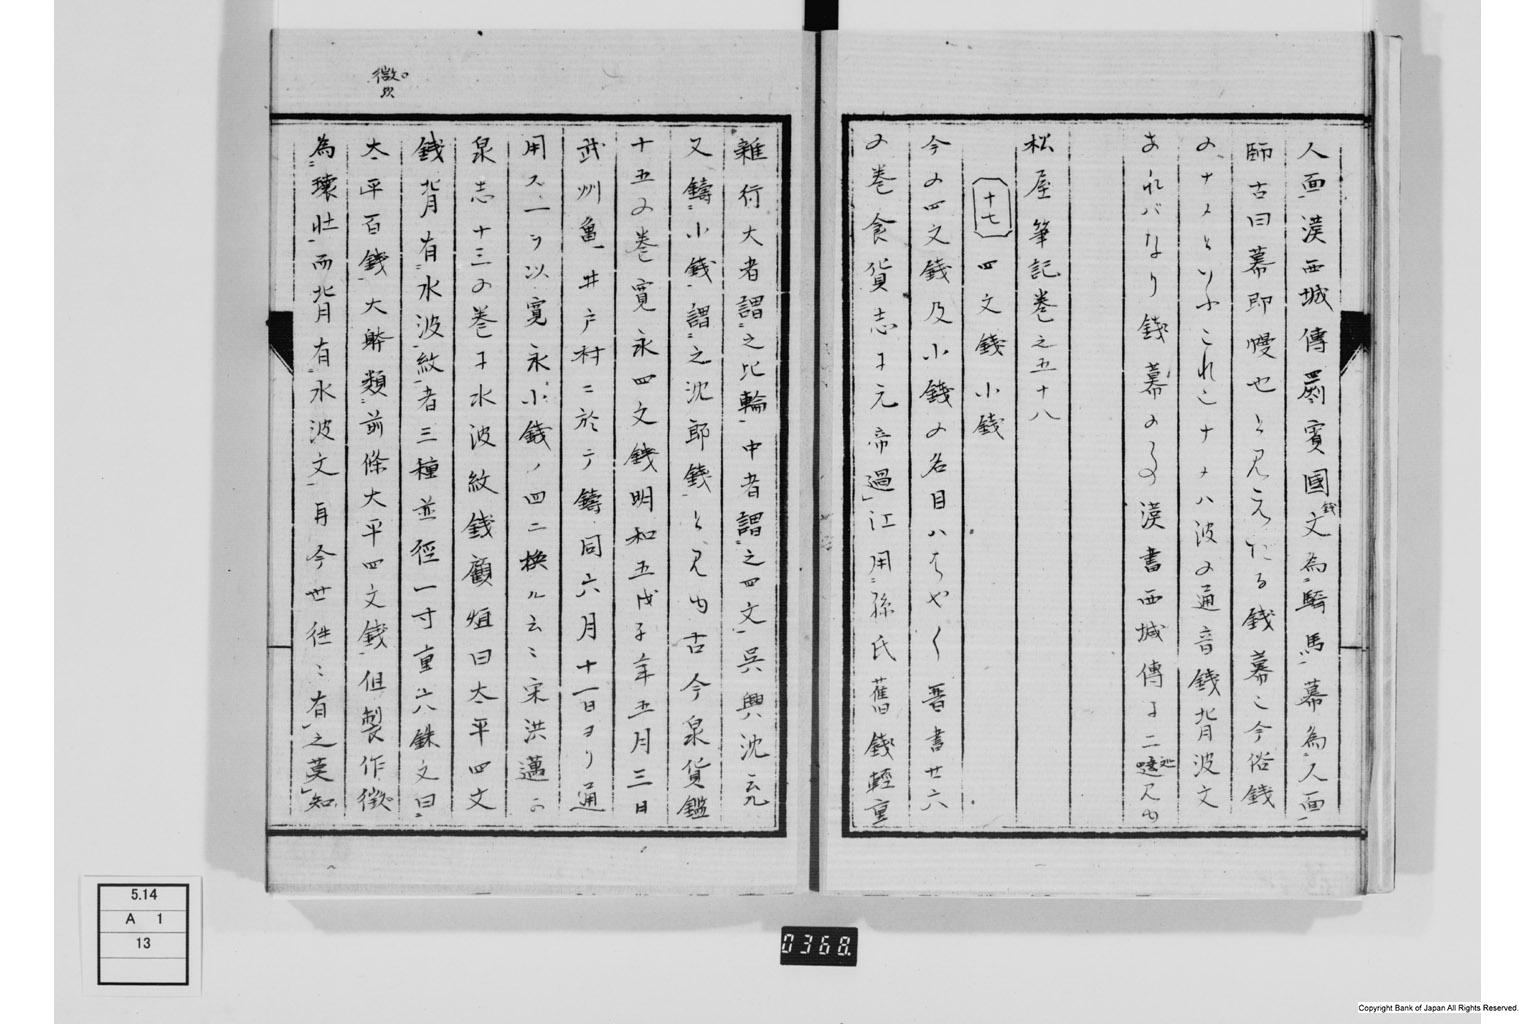 人面漢西域傳罽賓國錢文為騎馬幕為人面
師古曰幕即幔也と見えたる錢幕之今俗錢
のナメといふこれ也ナメハ波の通音錢背波文
あれバなり錢幕の事漢書西域傳に二処見ゆ
松屋筆記巻之五十八
十七 四文錢小錢
今の四文錢及小錢の名目ハはやく晋書廿六
の巻食貨志に元帝過江用孫氏舊錢輕重
雜行大者謂之比輪中者謂之四文呉興沈充
又鑄小錢謂之沈郎錢と見ゆ古今泉貨鑑
十五の巻寛永四文錢明和五戊子年五月三日
武州亀井戸村ニ於テ鑄同六月十一日ヨリ通
用ス一ヲ以寛永小錢ノ四ニ換ル云々宋洪邁が
泉志十三の巻に水波紋錢顧烜曰太平四文
錢背有水波紋者三種並徑一寸重六銖文曰
太平百錢大略類前條太平四文錢但製作微
為壞壯而背有水波文耳今世往々有之莫知
微
5.14
A 1
13
0368.
Copyright Bank of Japan All Rights Reserved.